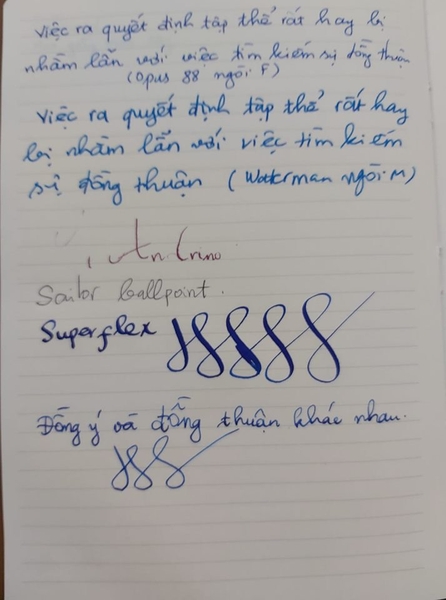 Việc ra quyết định tập thể rất hay bị
nhầm lẫn với việc tìm kiếm sự đồng thuận
(Opus 88 ngòi F)
Việc ra quyết định tập thể rất hay
bị nhầm lẫn với việc tìm kiếm
sự đồng thuận (Waterman ngòi M)
Sailor ballpoint.
Superflex
Đồng ý và đồng thuận khác nhau.